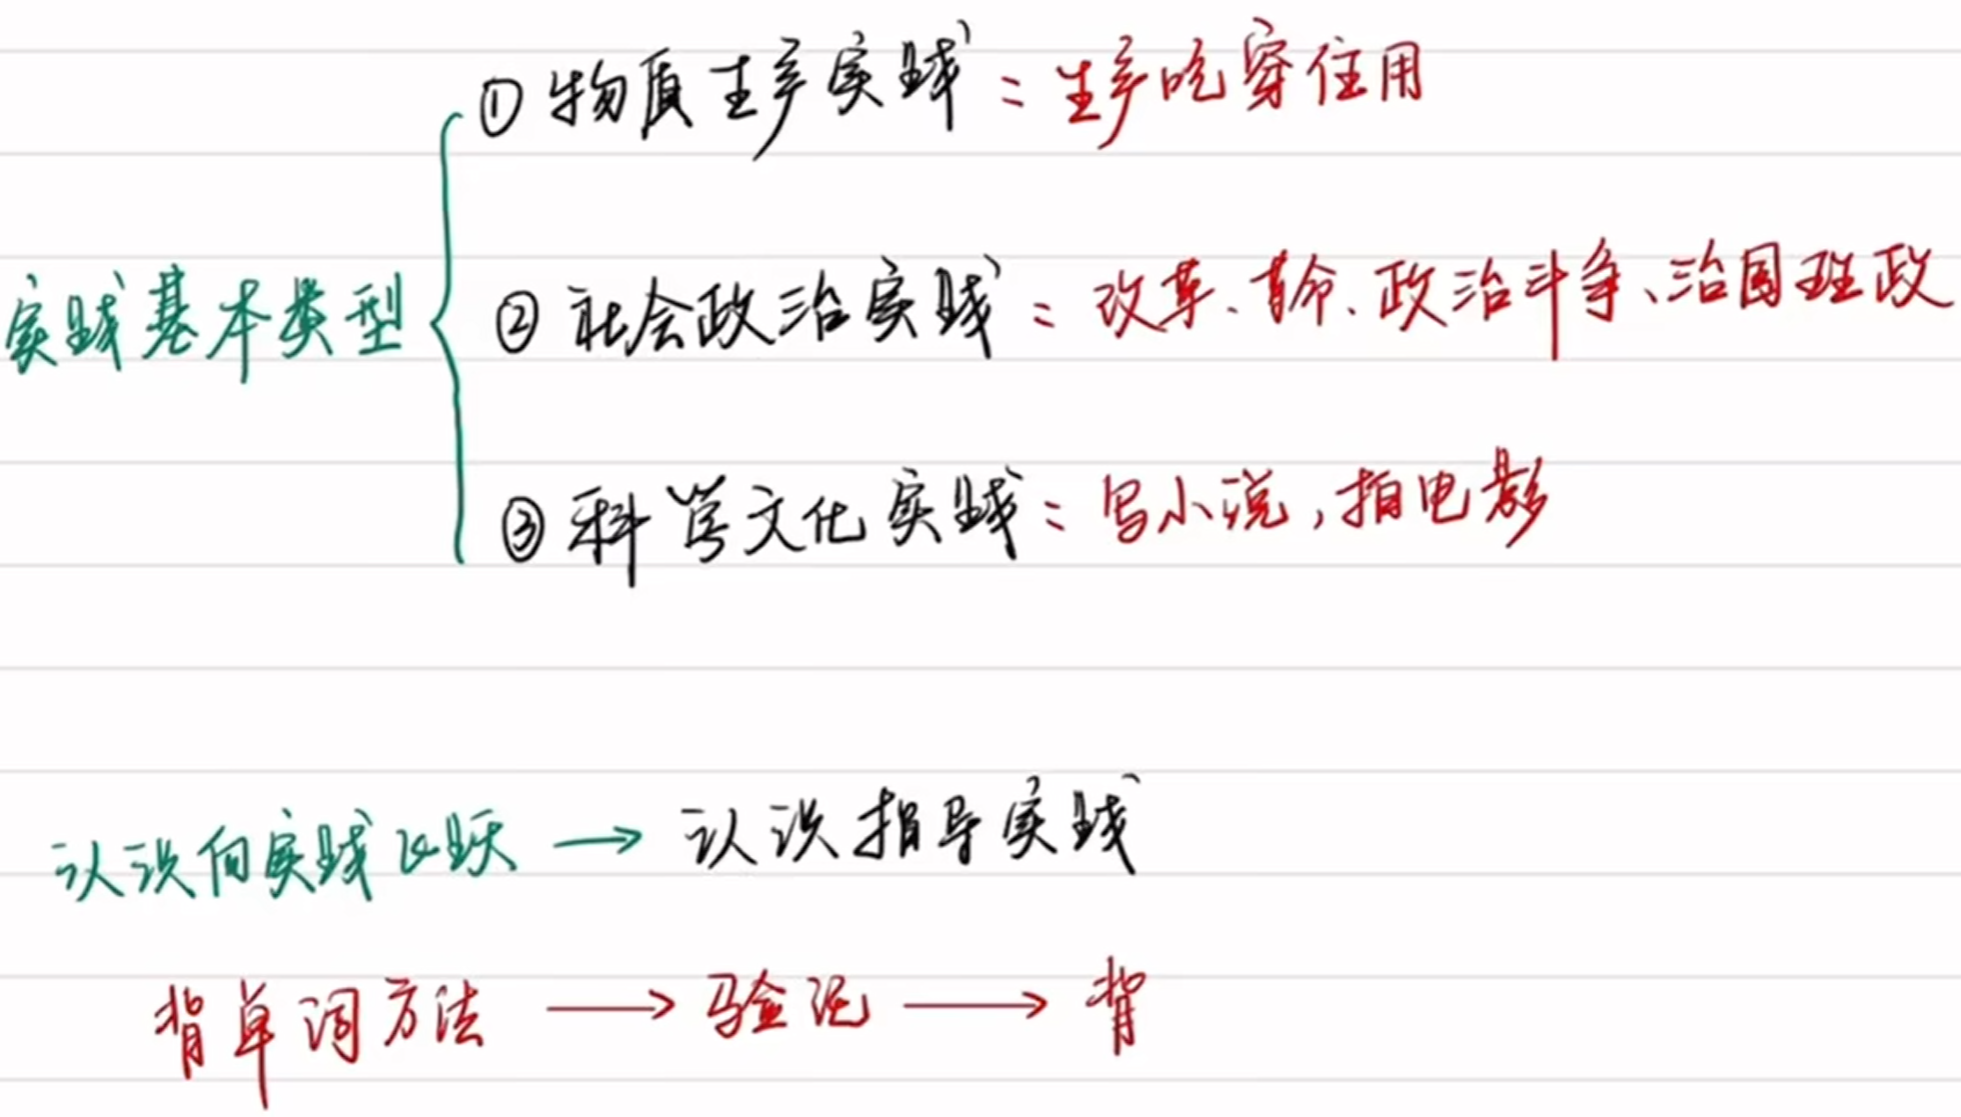 ①物质生产实践：生产吃穿住用
实践基本类型
②社会政治实践：改革、革命、政治斗争、治国理政
③科学文化实践：写小说，拍电影
认识向实践飞跃→认识指导实践
背单词方法→验证→背